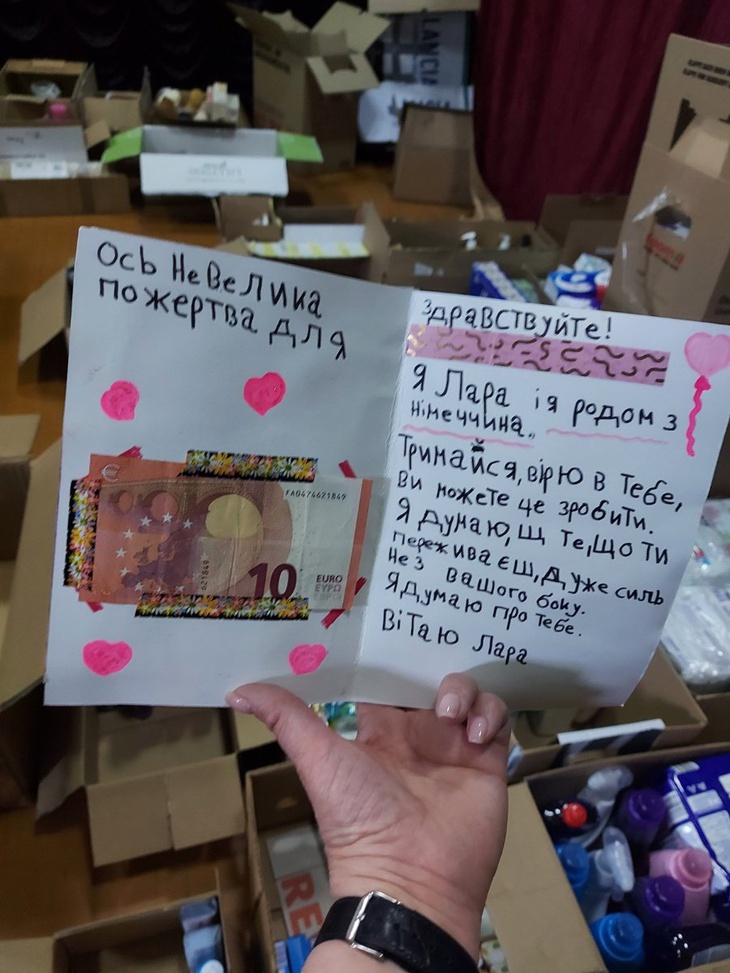 Ось невелика
пожертва для
€
FA0474621849
621849
10
EURO
ЕУРΩ
ЕВРО
Здравствуйте!
Я Лара і я родом з
німеччина.
Тримайся, вірю в Тебе,
Ви можете це зробити.
Я думаю, щ те, що ти
переживаєш, дуже силь
не з вашого боку.
Я думаю про тебе.
Вітаю Лара